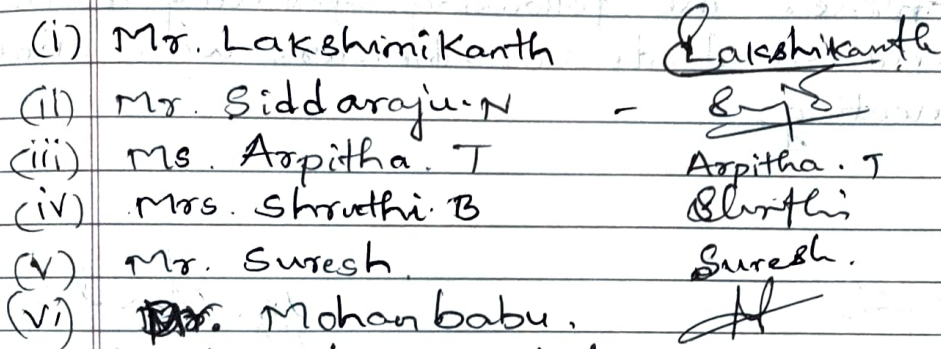 (i) Mr. Lakshimikanth Lakshikanth
(ii) Mr. Siddaraju.N -
(iii) Ms. Arpitha. T Arpitha. T
(iv) Mrs. Shruthi. B Shruthi
(v) Mr. Suresh. Suresh.
(vi) Mohan babu.